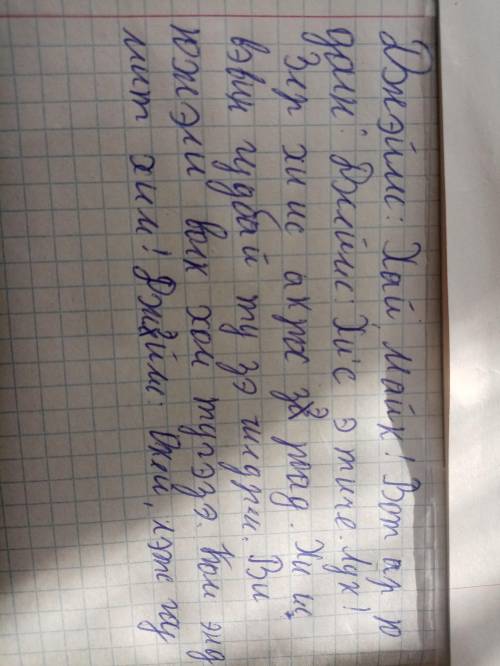 Джэймс: Хай, Майк! Вот ар ю
доин? Джеймс: Хи'с э тиче. Лук!
Зер хи ис акрос зэ роад. Хи ис
вэвин гудбай ту зэ
южэли вок хом тугэзэ. Кам энд
мит хим! Джэймс: Окей, лэтс гоу